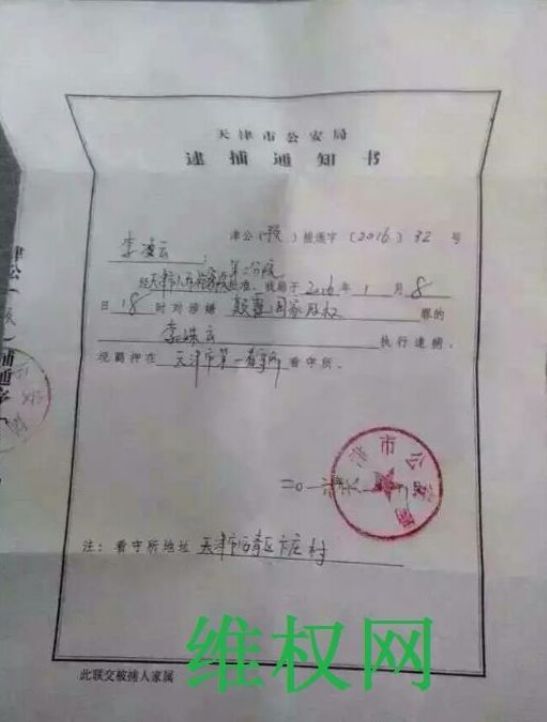 天津市公安局
逮捕通知书
津公（预）捕通字〔2016〕32号
李凌云：
经天津市人民检察院第二分院批准，我局于2016年1月8
日18时对涉嫌颠覆国家政权罪的
李姝云执行逮捕，
现羁押在天津市第一看守所看守所。
天津市公安局
二〇一六年一月
注：看守所地址天津市西青区下庄村
此联交被捕人家属
维权网
津公（预）捕通字